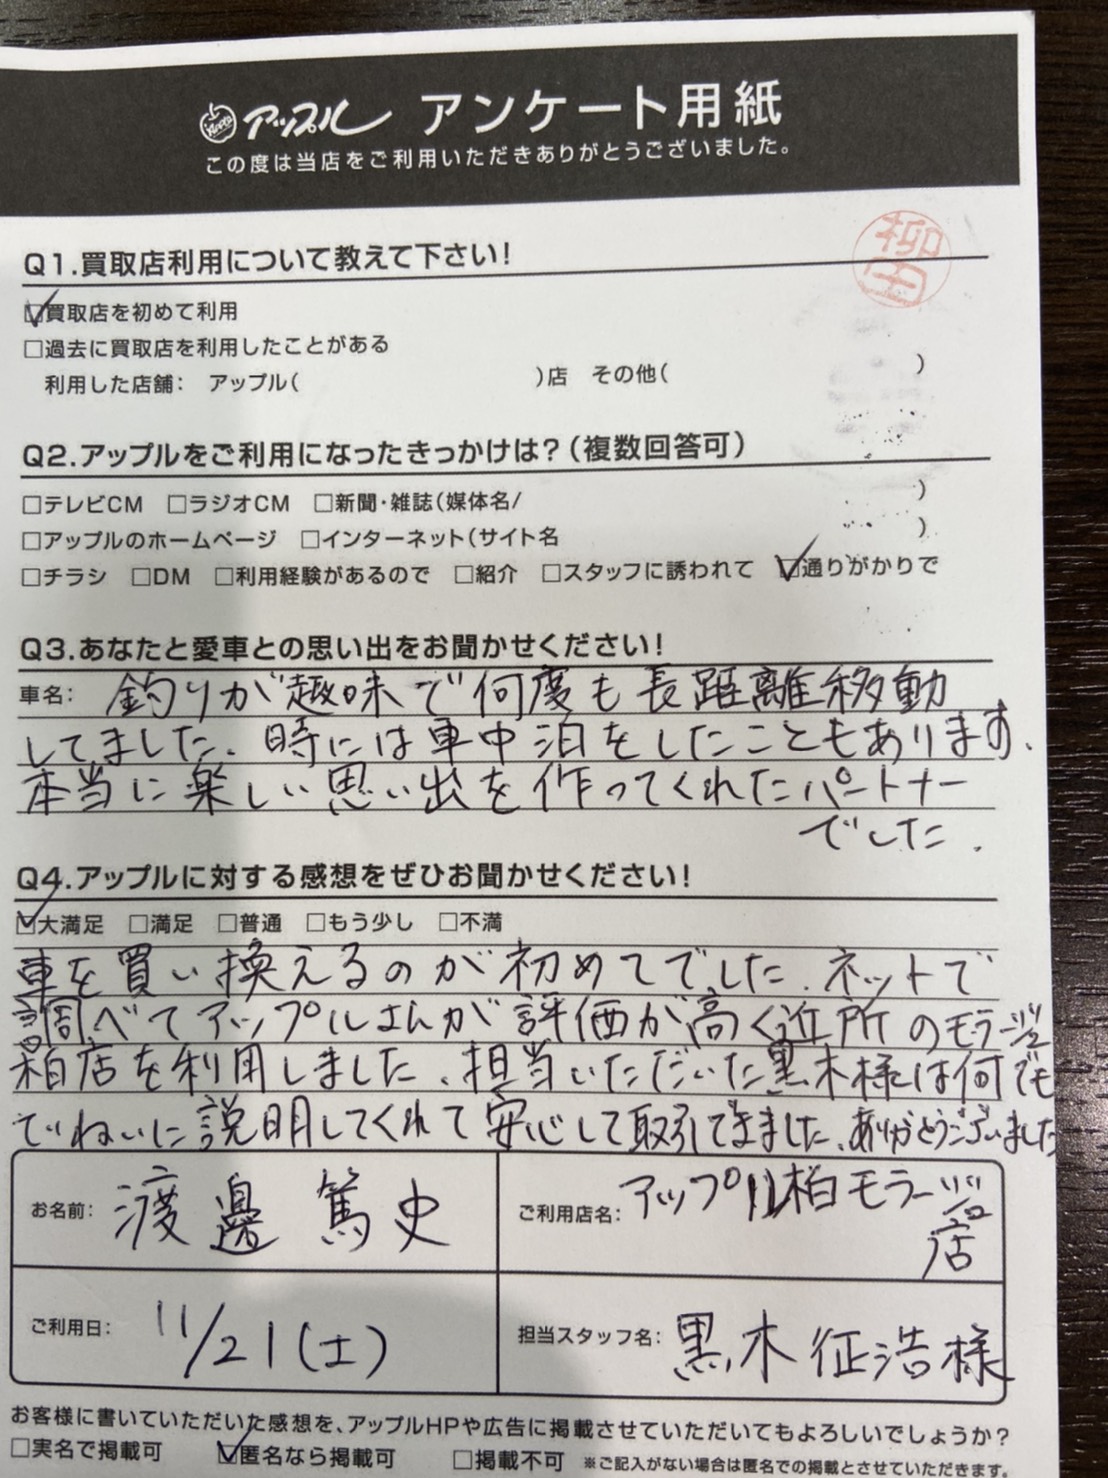 アップル アンケート用紙
この度は当店をご利用いただきありがとうございました。
柳田
Q1.買取店利用について教えて下さい!
☑買取店を初めて利用
□過去に買取店を利用したことがある
利用した店舗: アップル( )店 その他( )
Q2.アップルをご利用になったきっかけは?(複数回答可)
□テレビCM □ラジオCM □新聞・雑誌(媒体名/ )
□アップルのホームページ □インターネット(サイト名 )
□チラシ □DM □利用経験があるので □紹介 □スタッフに誘われて ☑通りがかりで
Q3.あなたと愛車との思い出をお聞かせください!
車名: 釣りが趣味で何度も長距離移動
してました。時には車中泊をしたこともあります。
本当に楽しい思い出を作ってくれたパートナー
でした。
Q4.アップルに対する感想をぜひお聞かせください!
☑大満足 □満足 □普通 □もう少し □不満
車を買い換えるのが初めてでした。ネットで
調べてアップルさんが評価が高く近所のモラージュ
柏店を利用しました。担当いただいた黒木様は何でも
ていねいに説明してくれて安心して取引できました。ありがとうございました
お名前: 渡邊 篤史
ご利用店名: アップル柏モラージュ
店
ご利用日: 11/21(土)
担当スタッフ名: 黒木 征浩様
お客様に書いていただいた感想を、アップルHPや広告に掲載させていただいてもよろしいでしょうか?
□実名で掲載可 ☑匿名なら掲載可 □掲載不可 ※ご記入がない場合は匿名での掲載とさせていただきます。